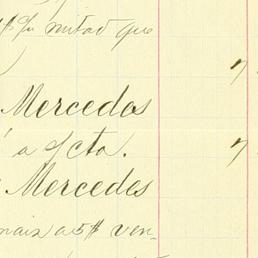 mitad que
)
Mercedes
a a/cta.
Mercedes
maiz a 5$ ven-